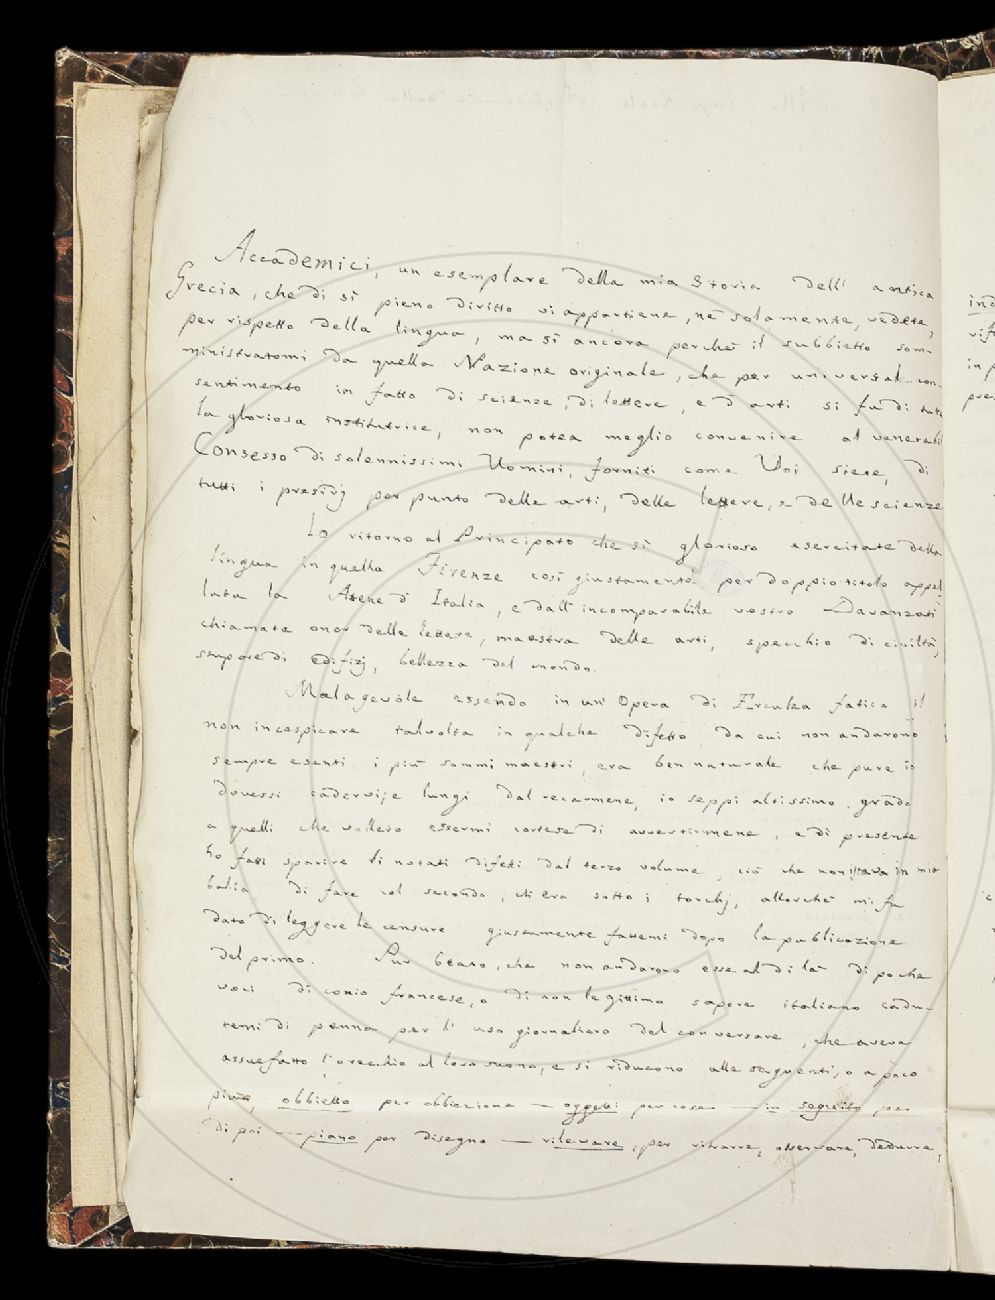 Accademici, un esemplare della mia Storia dell' antica
Grecia, che di sì pieno diritto vi appartiene, nè solamente, vedete,
per rispetto della lingua, ma sì ancora perchè il subbietto som-
ministratomi da quella Nazione originale, che per universal con-
sentimento in fatto di scienze, di lettere, e d' arti si fu di tutti
la gloriosa institutrice, non potea meglio convenire al venerabil
Consesso di solennissimi Uomini, forniti come Voi siete, di
tutti i presidj per punto delle arti, delle lettere, e delle scienze
Io ritorno al Principato che sì glorioso esercitate della
lingua in quella Firenze così giustamente per doppio titolo appel
lata la Atene d' Italia, e dall' incomparabile vostro Davanzati
chiamata onor delle lettere, maestra delle arti, specchio di civiltà,
stupore di edifizj, bellezza del mondo.
Malagevole essendo in un' Opera di Erculea fatica il
non incespicare talvolta in qualche difetto da cui non andarono
sempre esenti i più sommi maestri, era ben naturale che pure io
dovessi cadervi; e lungi dal recarmene, io seppi altissimo grado
a quelli che vollero essermi cortese di avvertirmene, e di presente
ho fatti sparire li notati difetti dal terzo volume, ciò che non istava in mia
balia di fare col secondo, ch' era sotto i torchj, allorchè mi fu
dato di leggere le censure giustamente fattemi dopo la publicazione
del primo. Pur beato, che non andarono esse al di là di poche
voci di conio francese, o di non legittimo sapore italiano cadu-
temi di penna per l' uso giornaliero del conversare, che aveva
assuefatto l' orecchio al loro suono, e si riducono alle seguenti, o a poco
più, obbietto per obbiezione — oggetti per cose — in seguito per
di poi — piano per disegno — rilevare, per ritrarre, osservare, dedurre,